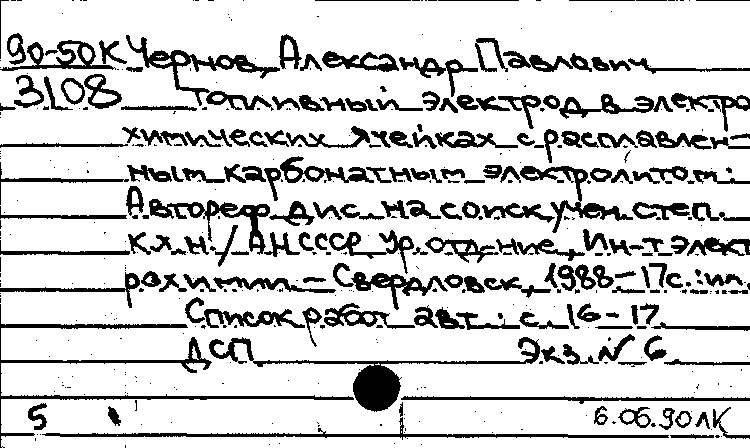 90-50К Чернов, Александр Павлович
3108 Топливный электрод в электро
химических ячейках с расплавлен-
ным карбонатным электролитом:
Автореф. дис. на соиск. учен. степ.
к.х.н. / АН СССР, Ур. отд-ние, Ин-т элект
рохимии. - Свердловск, 1988 - 17с.: ил.
Список работ авт.: с. 16-17.
ДСП Экз. № 6.
5 6.06.90ЛК